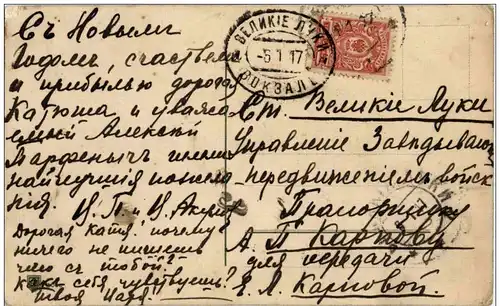 Съ Новымъ
Годомъ, счастьемъ
и прибылью дорогая
Катюша и уважае
мый Алексѣй
Парфенычъ шлемъ
наилучшія пожела
ния.
Дорогая Катя! почему
ничего не пишешь
что съ тобой?
Какъ себя чувствуешь?
твоя
ВЕЛИКІЕ ЛУКИ
-5 1 17
ВОКЗАЛЪ
Ст. Великіе Луки
Управленіе Завѣдывающ
передвиженіемъ войскъ
Прапорщику
А. П. Карпову
для передачи
Е. Л. Карповой.